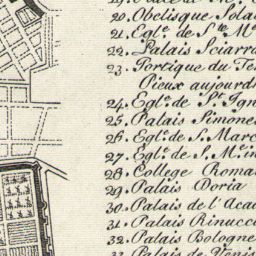 20. Obelisque Sola
21. Egl.e de S.te M.
22. Palais Sciarra
23. Portique du Te
Pieux aujourd
24. Egl.e de S.t Ign
25. Palais Simone
26. Egl.e de S. Marc
27. Egl.e de S. M.
28. College Roma
29. Palais Doria
30. Palais de l'Aca
31. Palais Rinucc
32. Palais Bologne
33. Palais de Venis